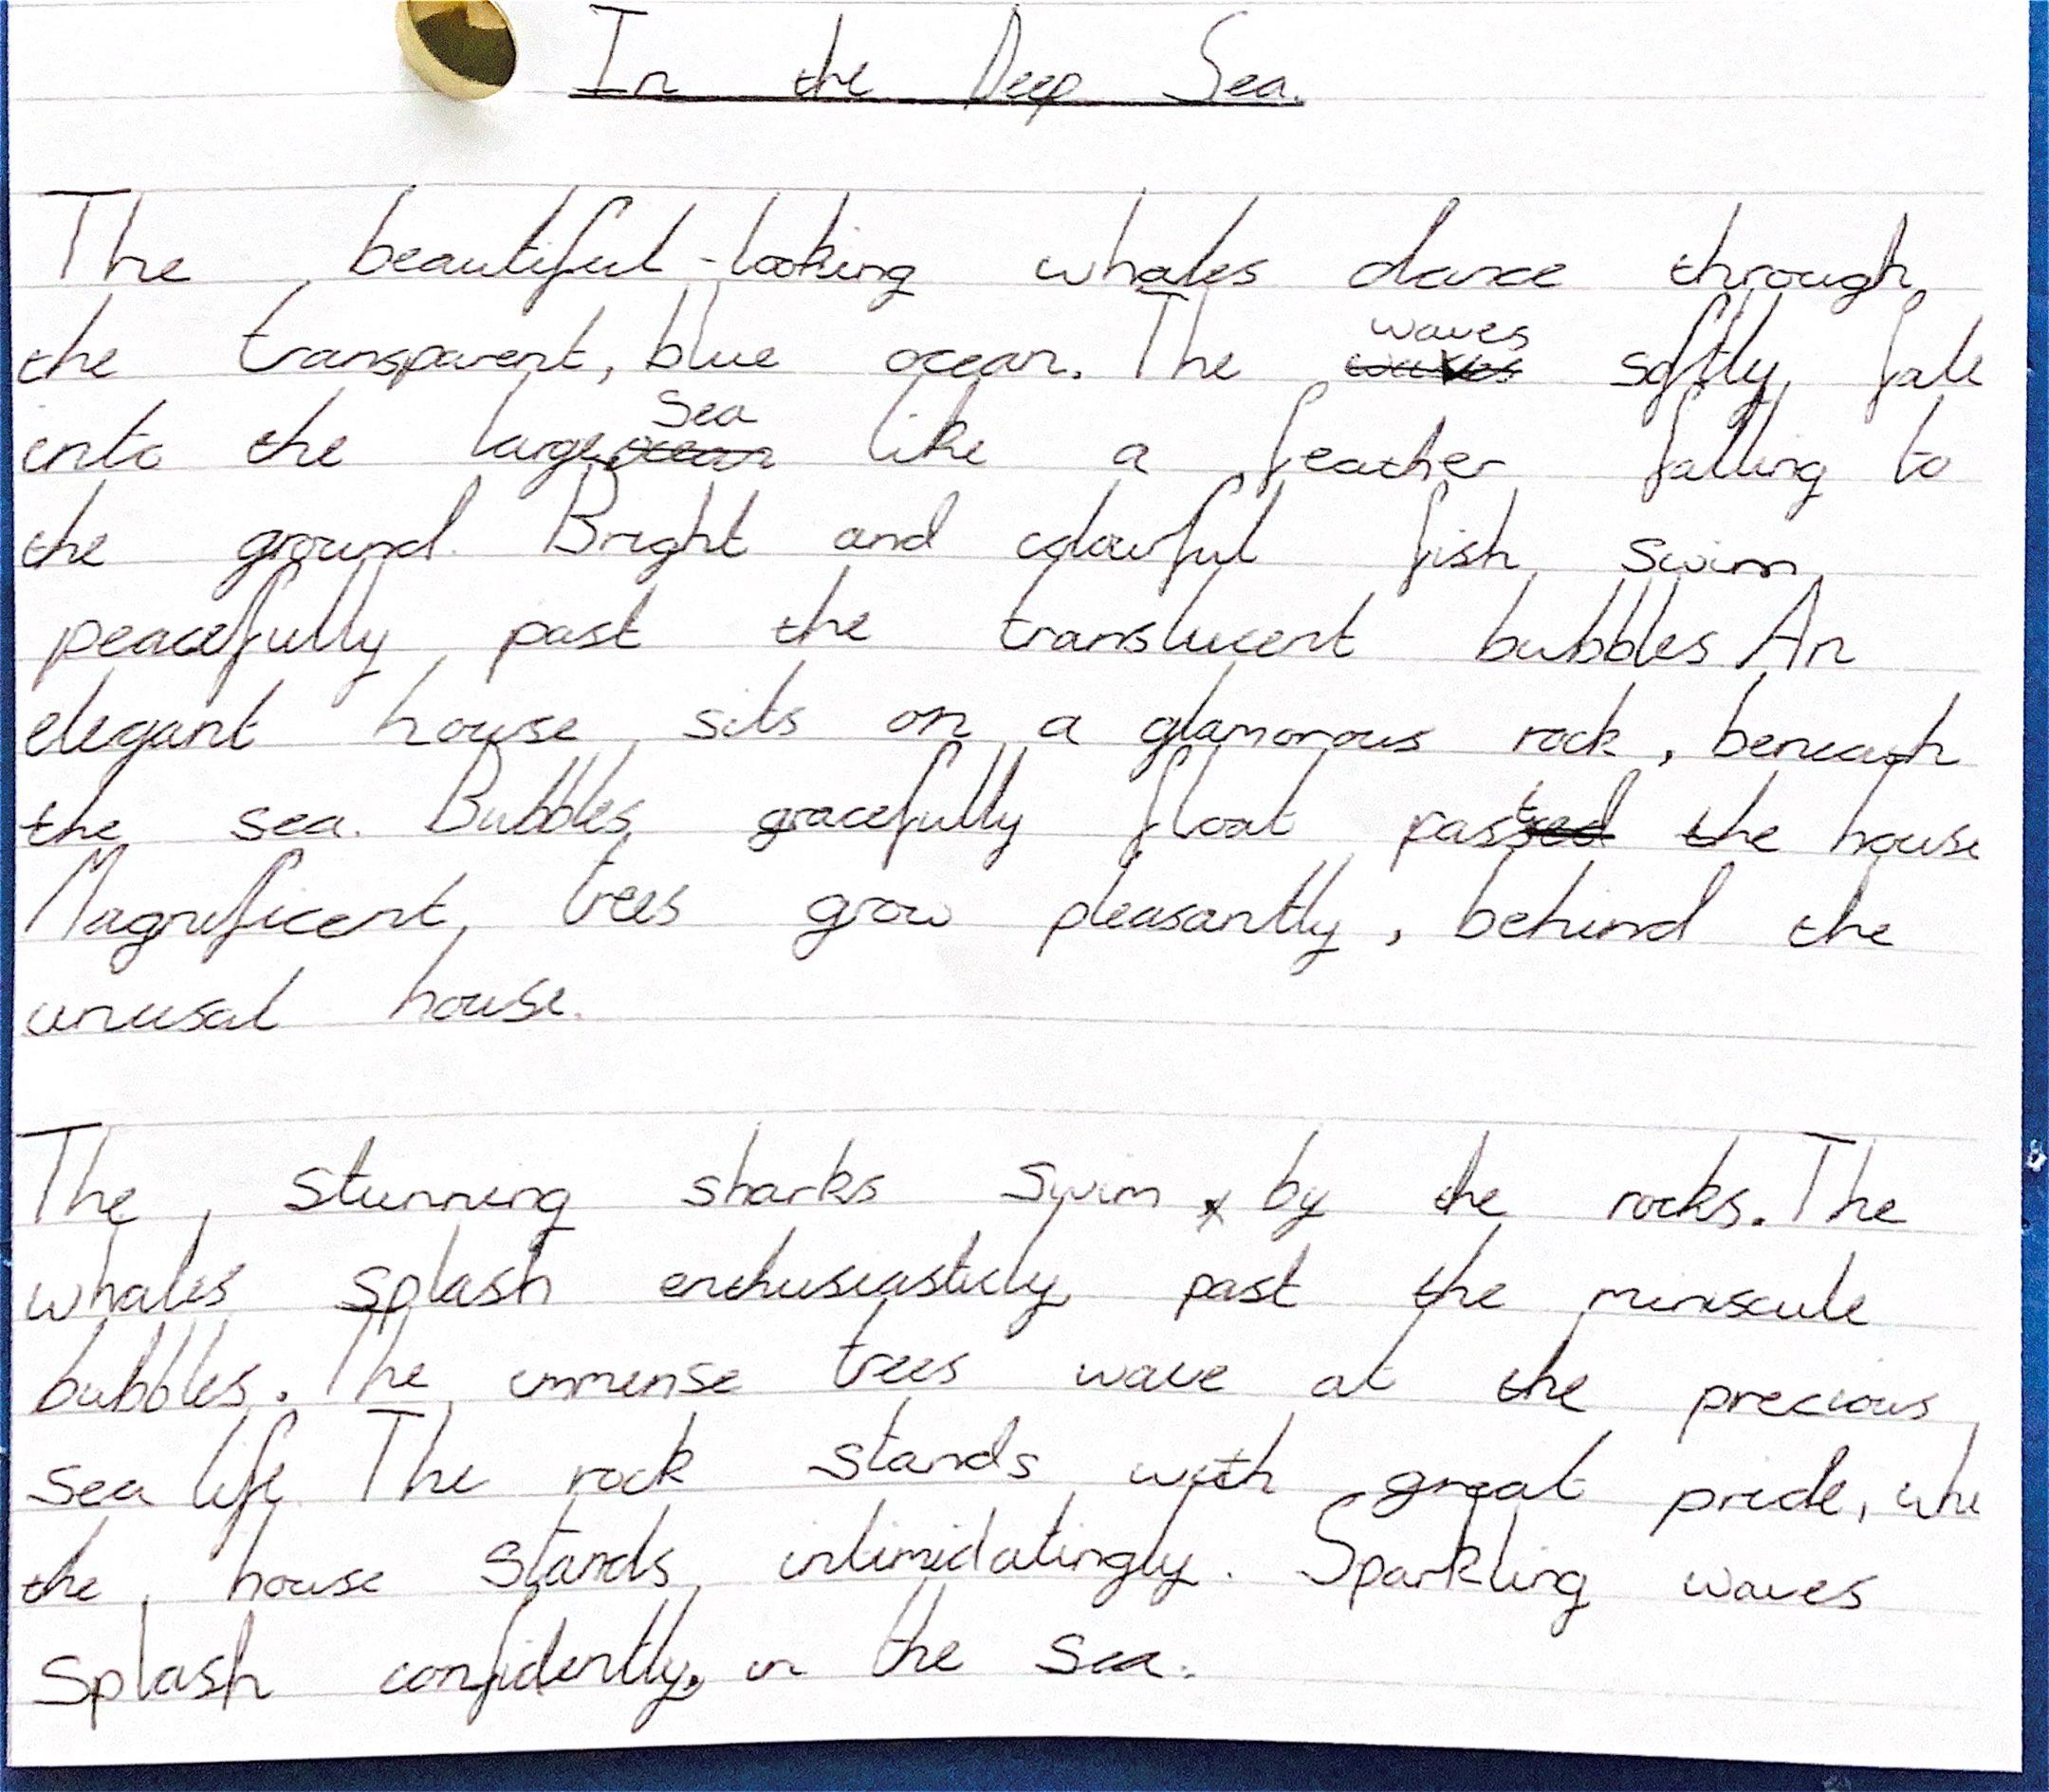 In the Deep Sea.
The beautiful-looking whales dance through
the transparent, blue ocean. The waves softly fall
into the large sea like a feather falling to
the ground. Bright and colourful fish swim
peacefully past the translucent bubbles. An
elegant house sits on a glamorous rock, beneath
the sea. Bubbles gracefully float past the house
Magnificent trees grow pleasantly, behind the
unusal house.
The stunning sharks swim by the rocks. The
whales splash enthusiasticly past the miniscule
bubbles. The immense trees wave at the precious
sea life. The rock stands with great pride,
the house stands intimidatingly. Sparkling waves
splash confidently, in the sea.